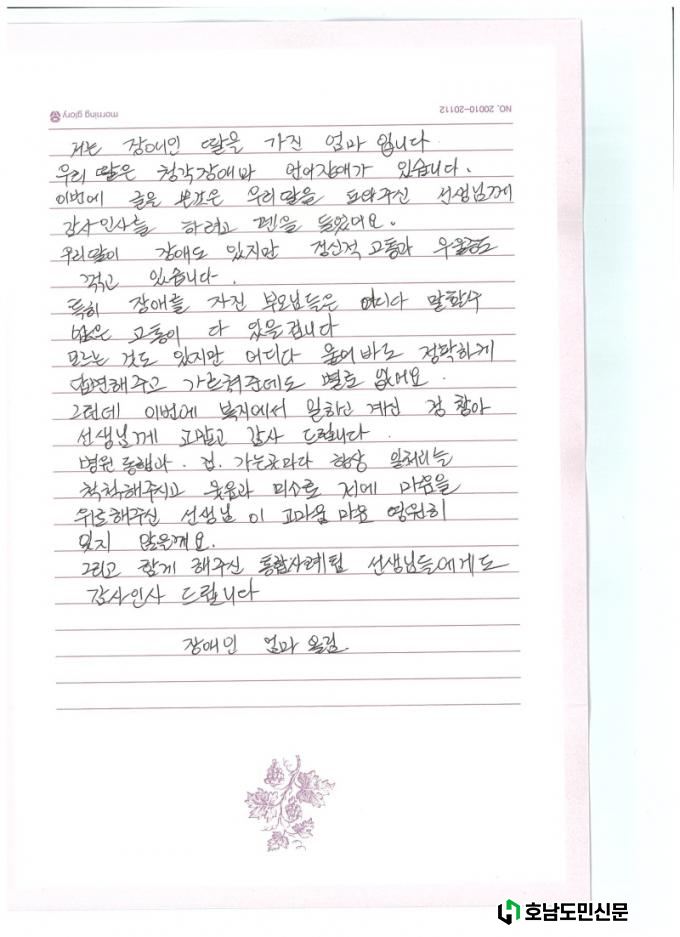 morning glory
NO. 20010-20112
저는 장애인 딸을 가진 엄마 입니다
우리 딸은 청각장애과 언어장애가 있습니다.
이번에 글을 쓰것은 우리딸을 도와주신 선생님께
감사인사를 하려고 펜을 들었어요.
우리딸이 장애도 있지만 정신적 고통과 우울증도
겪고 있습니다.
특히 장애를 가진 부모님들은 어디다 말할수
없은 고통이 다 있을겁니다
모르는 것도 있지만 어디다 물어바도 정확하게
답변해주고 가르쳐주는데도 별로 없어요
그런데 이번에 복지에서 일하고 계신
선생님께 고맙고 감사 드립니다.
병원동행과. 가는곳마다 항상 일처리를
척척해주시고 웃음과 미소로 저에 마음을
위로해주신 선생님 이 고마움 마음 영원히
잊지 않을께요.
그리고 함께 해주신 통합사례팀 선생님들에게도
감사인사 드립니다
장애인 엄마 올림.
호남도민신문